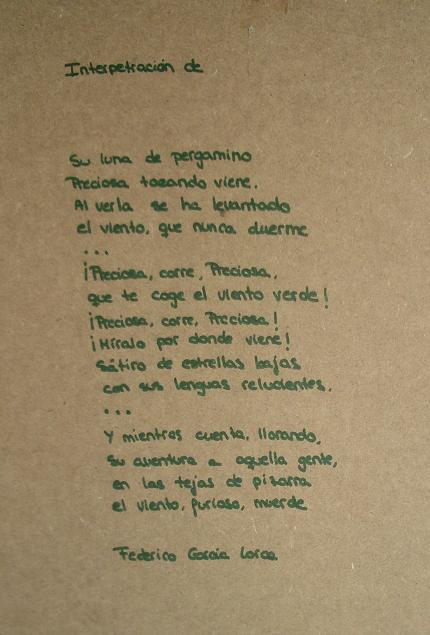 Interpetración de
Su luna de pergamino
Preciosa tocando viene.
Al verla se ha levantado
el viento, que nunca duerme
...
¡Preciosa, corre, Preciosa,
que te coge el viento verde!
¡Preciosa, corre, Preciosa!
¡Míralo por donde viene!
Sátiro de estrellas bajas
con sus lenguas relucientes.
...
Y mientras cuenta, llorando,
su aventura a aquella gente,
en las tejas de pizarra
el viento, furioso, muerde
Federico García Lorca